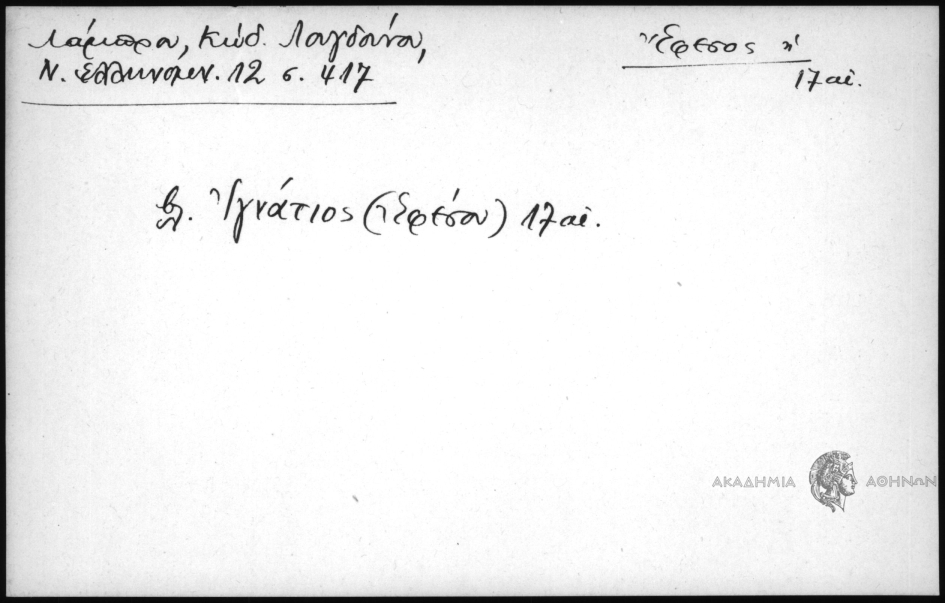 Λάμπρου, Κώδ. Λαγδάνα,
Ν. Ἑλληνομν. 12 σ. 417
Ἔφεσος ἡ
17 αἰ.
βλ. Ἰγνάτιος (Ἐφέσου) 17 αἰ.
ΑΚΑΔΗΜΙΑ ΑΘΗΝΩΝ